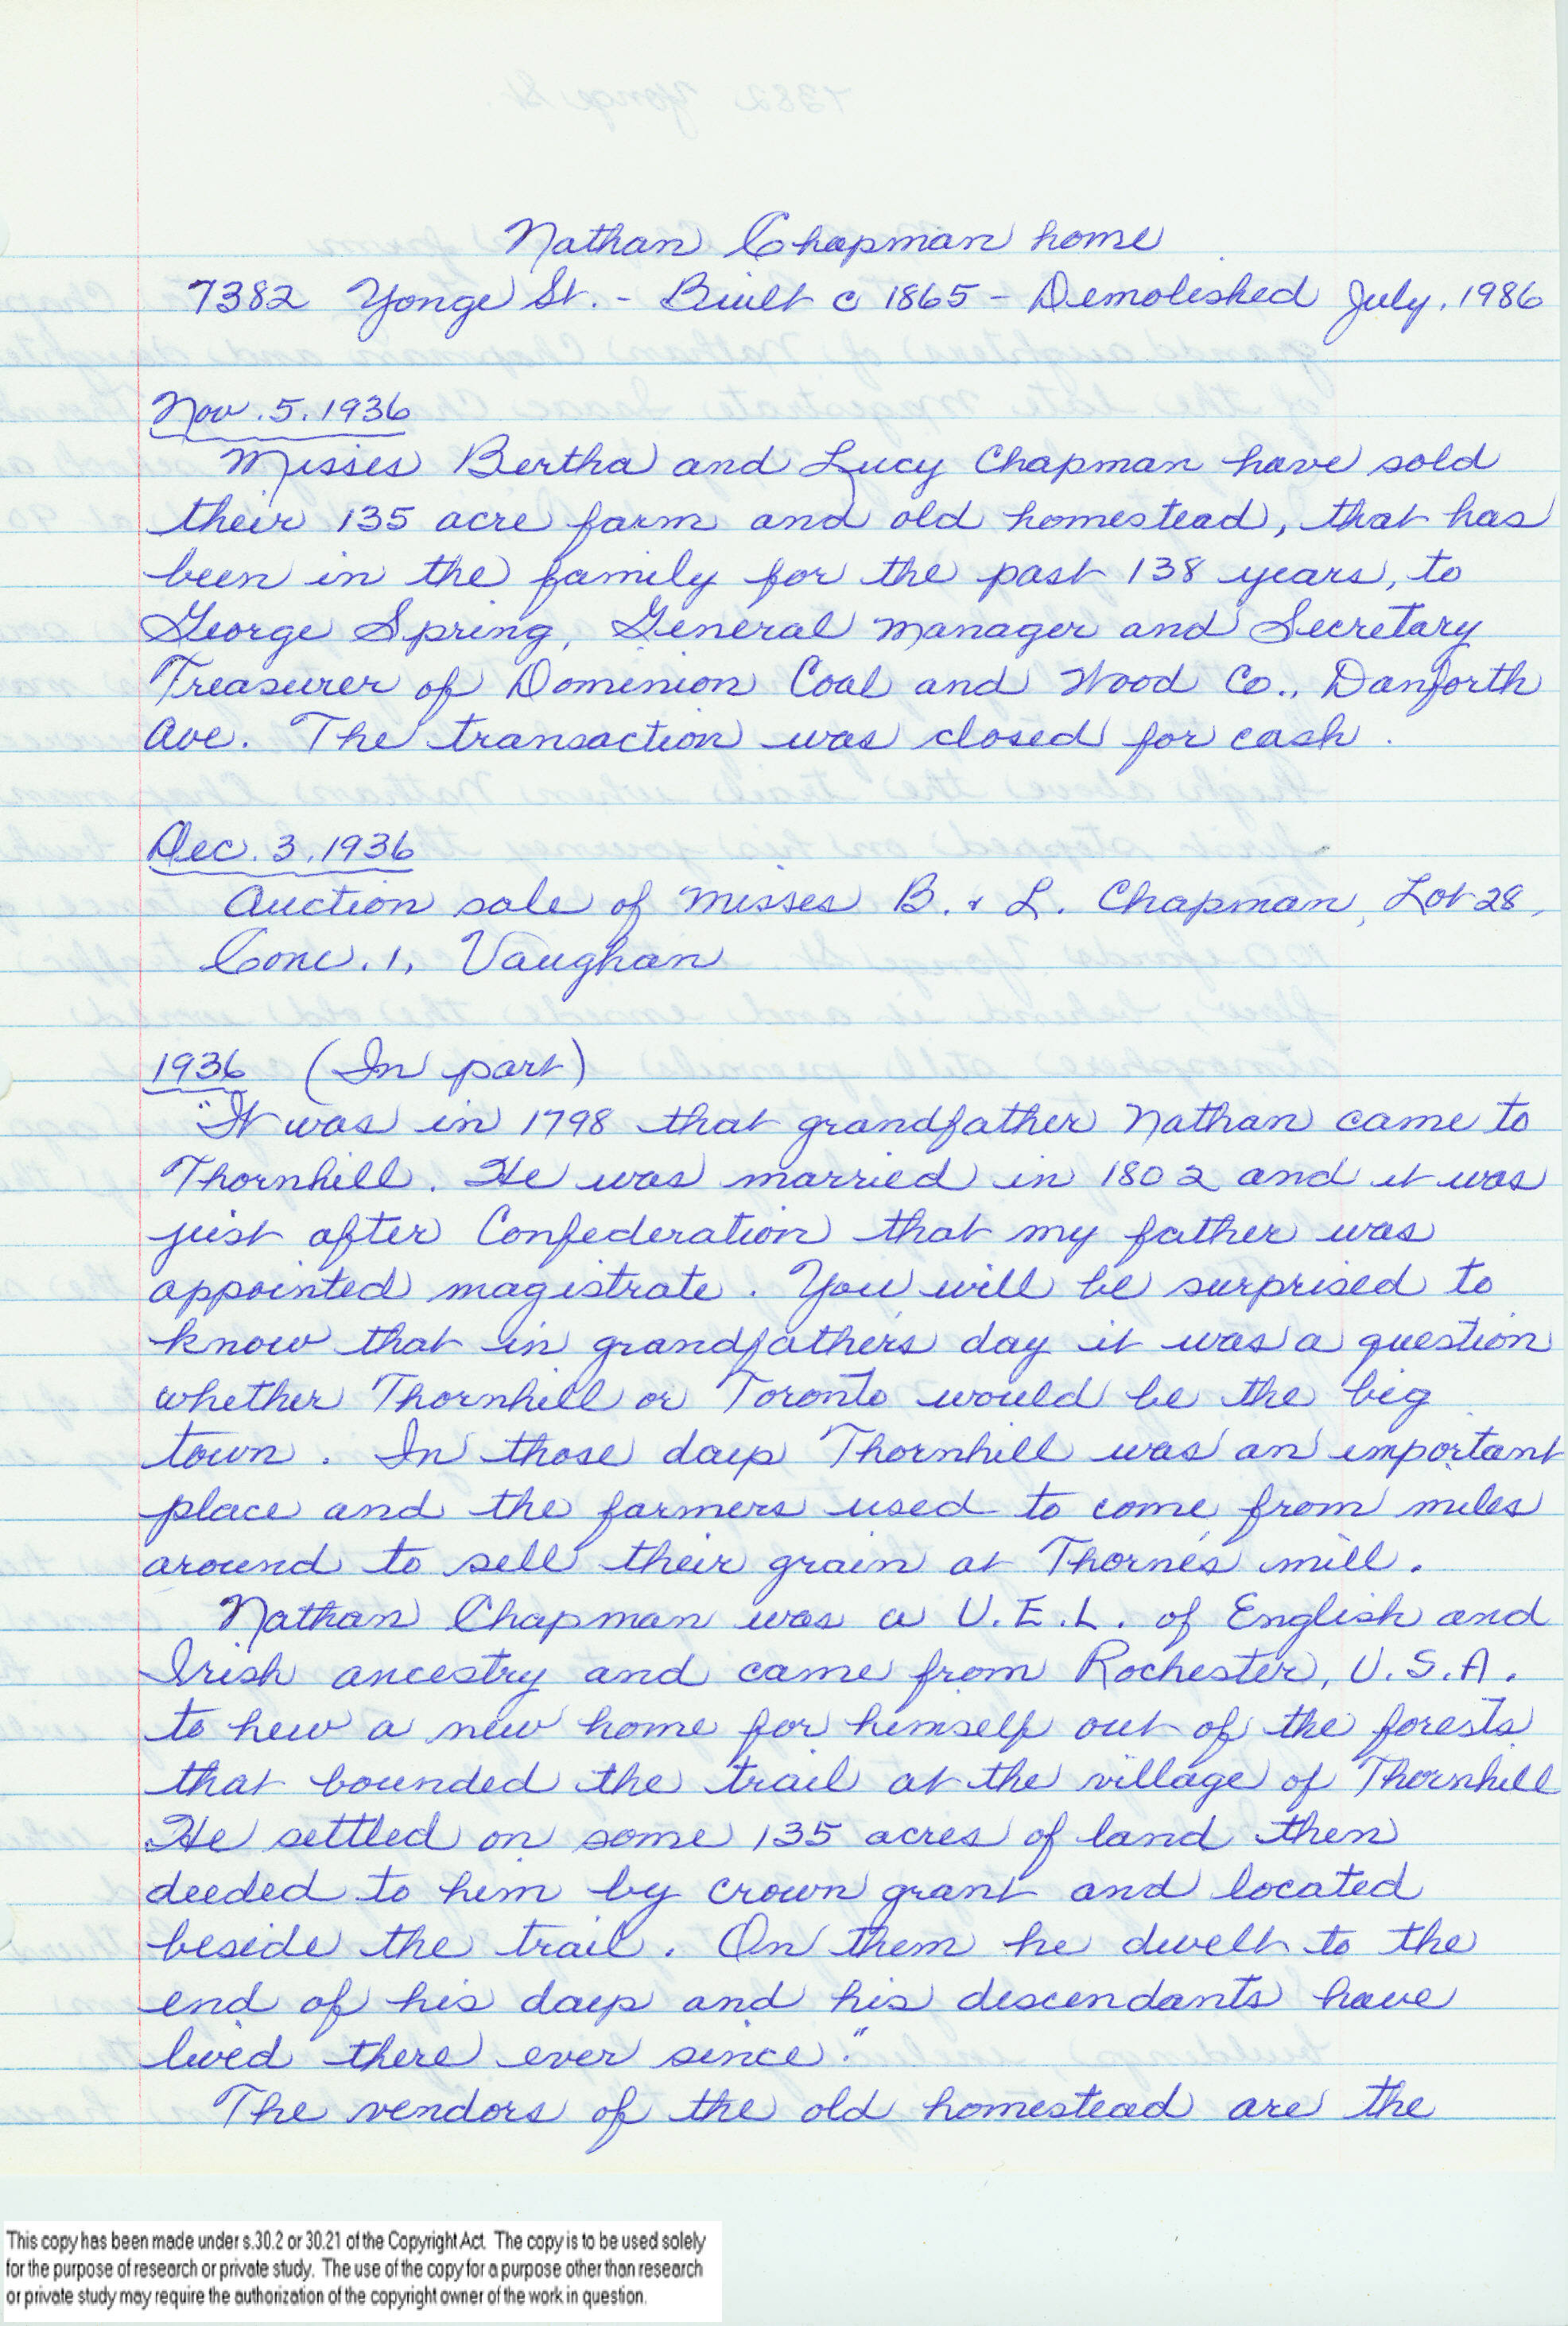 Nathan Chapman home
7382 Yonge St. - Built c 1865 - Demolished July. 1986
Nov. 5. 1936
Misses Bertha and Lucy Chapman have sold
their 135 acre farm and old homestead, that has
been in the family for the past 138 years, to
George Spring, General Manager and Secretary
Treasurer of Dominion Coal and Wood Co., Danforth
Ave. The transaction was closed for cash.
Dec. 3. 1936
Auction sale of Misses B. & L. Chapman, Lot 28,
Conc. 1, Vaughan
1936 (In part)
"It was in 1798 that grandfather Nathan came to
Thornhill. He was married in 1802 and it was
just after Confederation that my father was
appointed magistrate. You will be surprised to
know that in grandfather's day it was a question
whether Thornhill or Toronto would be the big
town. In those days Thornhill was an important
place and the farmers used to come from miles
around to sell their grain at Thorne's mill.
Nathan Chapman was a U.E.L. of English and
Irish ancestry and came from Rochester, U.S.A.
to hew a new home for himself out of the forests
that bounded the trail at the village of Thornhill
He settled on some 135 acres of land then
deeded to him by crown grant and located
beside the trail. On them he dwelt to the
end of his days and his descendants have
lived there ever since."
The vendors of the old homestead are the
This copy has been made under s.30.2 or 30.21 of the Copyright Act. The copy is to be used solely
for the purpose of research or private study. The use of the copy for a purpose other than research
or private study may require the authorization of the copyright owner of the work in question.